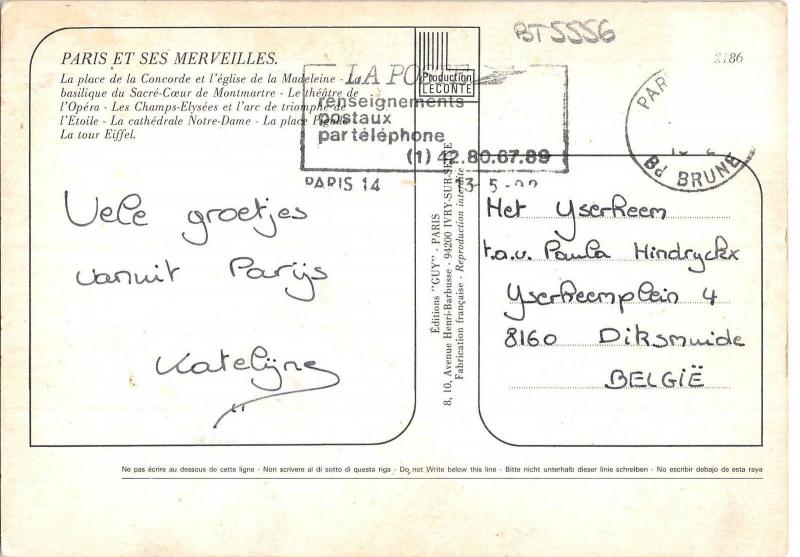 BT5556
2186
PARIS ET SES MERVEILLES.
La place de la Concorde et l'église de la Madeleine - La
basilique du Sacré-Cœur de Montmartre - Le théâtre de
l'Opéra - Les Champs-Elysées et l'arc de triomphe de
l'Etoile - La cathédrale Notre-Dame - La place Pigalle -
La tour Eiffel.
Production
LECONTE
LA POSTE
renseignements
postaux
par téléphone
(1) 42.80.67.89
PARIS 14
13-5-
PAR
Bd BRUNE
Vele groetjes
vanuit Parijs
Katelijne
Editions "GUY" - PARIS
8, 10, Avenue Henri-Barbusse - 94200 IVRY-SUR-SEINE
Fabrication française - Reproduction interdite
Het Yserheem
t.a.v. Paula Hindryckx
Yserheemplein 4
8160 Diksmuide
BELGIË
Ne pas écrire au dessous de cette ligne - Non scrivere al di sotto di questa riga - Do not Write below this line - Bitte nicht unterhalb dieser linie schreiben - No escribir debajo de esta raya